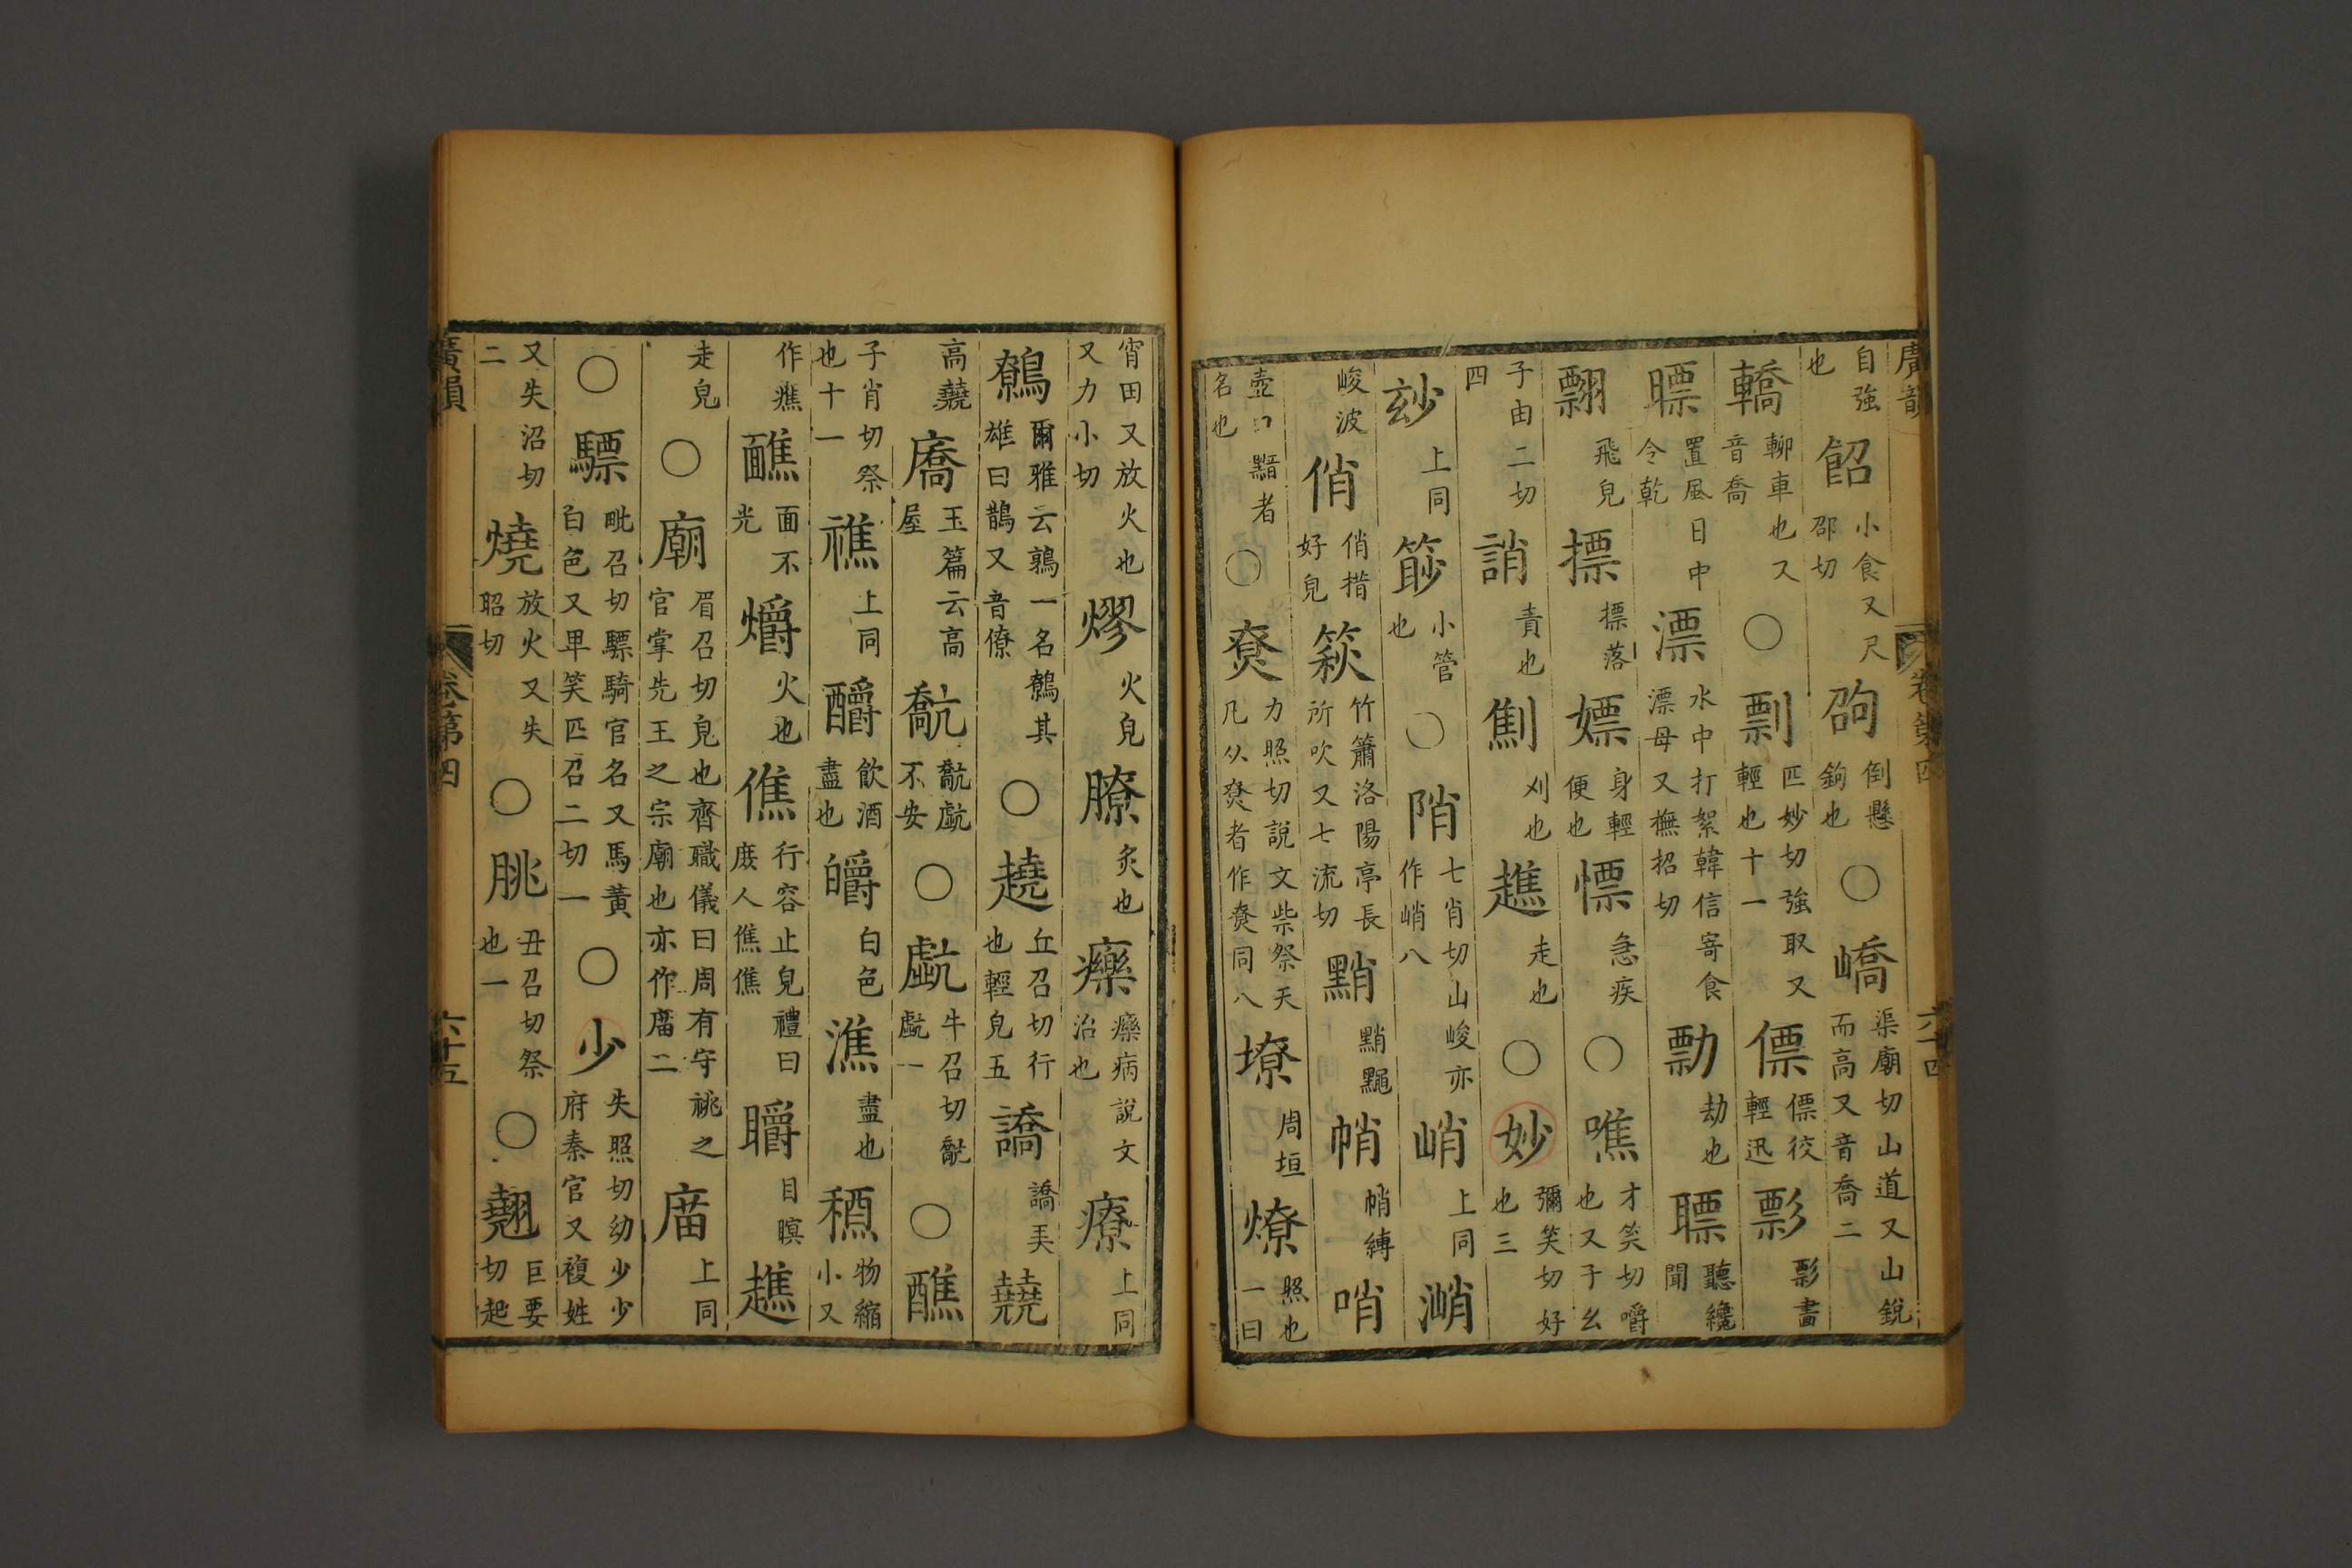 廣韻 卷第四 六十四
自強也 𩛩 小食又尺邵切 㔽 倒懸鉤也 ○ 嶠 渠廟切山道又山銳而高又音喬二
轎 轎車也又音喬 ○ 剽 匹妙切強取又輕也十一 僄 僄狡輕迅 彯 彯畫
㬓 置風日中令乾 漂 水中打絮韓信寄食漂母又撫招切 勡 劫也 瞟 聽纔聞
翲 飛皃 摽 摽落 嫖 身輕便也 慓 急疾 ○ 噍 才笑切嚼也又子幺
子由二切四 誚 責也 劁 刈也 趭 走也 ○ 妙 彌笑切好也三
玅 上同 䈅 小管也 ○ 陗 七肖切山峻亦作峭八 峭 上同 潲
峻波 俏 俏措好皃 篍 竹簫洛陽亭長所吹又七流切 䵲 䵲䵴 帩 帩縛 哨
壺口黠者名也 ○ 尞 力照切說文柴祭天凡从尞者作尞同八 墩 周垣 燎 照也一曰
宵田又放火也又力小切 熮 火皃 膫 炙也 𤻲 𤻲病說文治也 療 上同
鷯 爾雅云鶉一名鷯其雄曰鶛又音僚 ○ 趬 丘召切行也輕皃五 譑 譑𦍋 𡙎
高𡙎 㢗 玉篇云高屋 𩫊 𩫊𧇾不安 ○ 𧇾 牛召切𩫊𧇾一 ○ 醮
子肖切祭也十一 𥛲 上同 釂 飲酒盡也 皭 白色 潐 盡也 穛 物縮小又
作癄 𩉌 面不光 爝 火也 僬 行容止皃禮曰庶人僬僬 㬭 目瞑 趭
走皃 ○ 廟 眉召切皃也齊職儀曰周有守祧之官掌先王之宗廟也亦作庿二 庿 上同
○ 驃 毗召切驃騎官名又馬黃白色又卑笑匹召二切一 ○ 少 失照切幼少少府秦官又複姓
又失沼切二 燒 放火又失昭切 ○ 朓 丑召切祭也一 ○ 翹 巨要切起
廣韻 卷第四 六十五